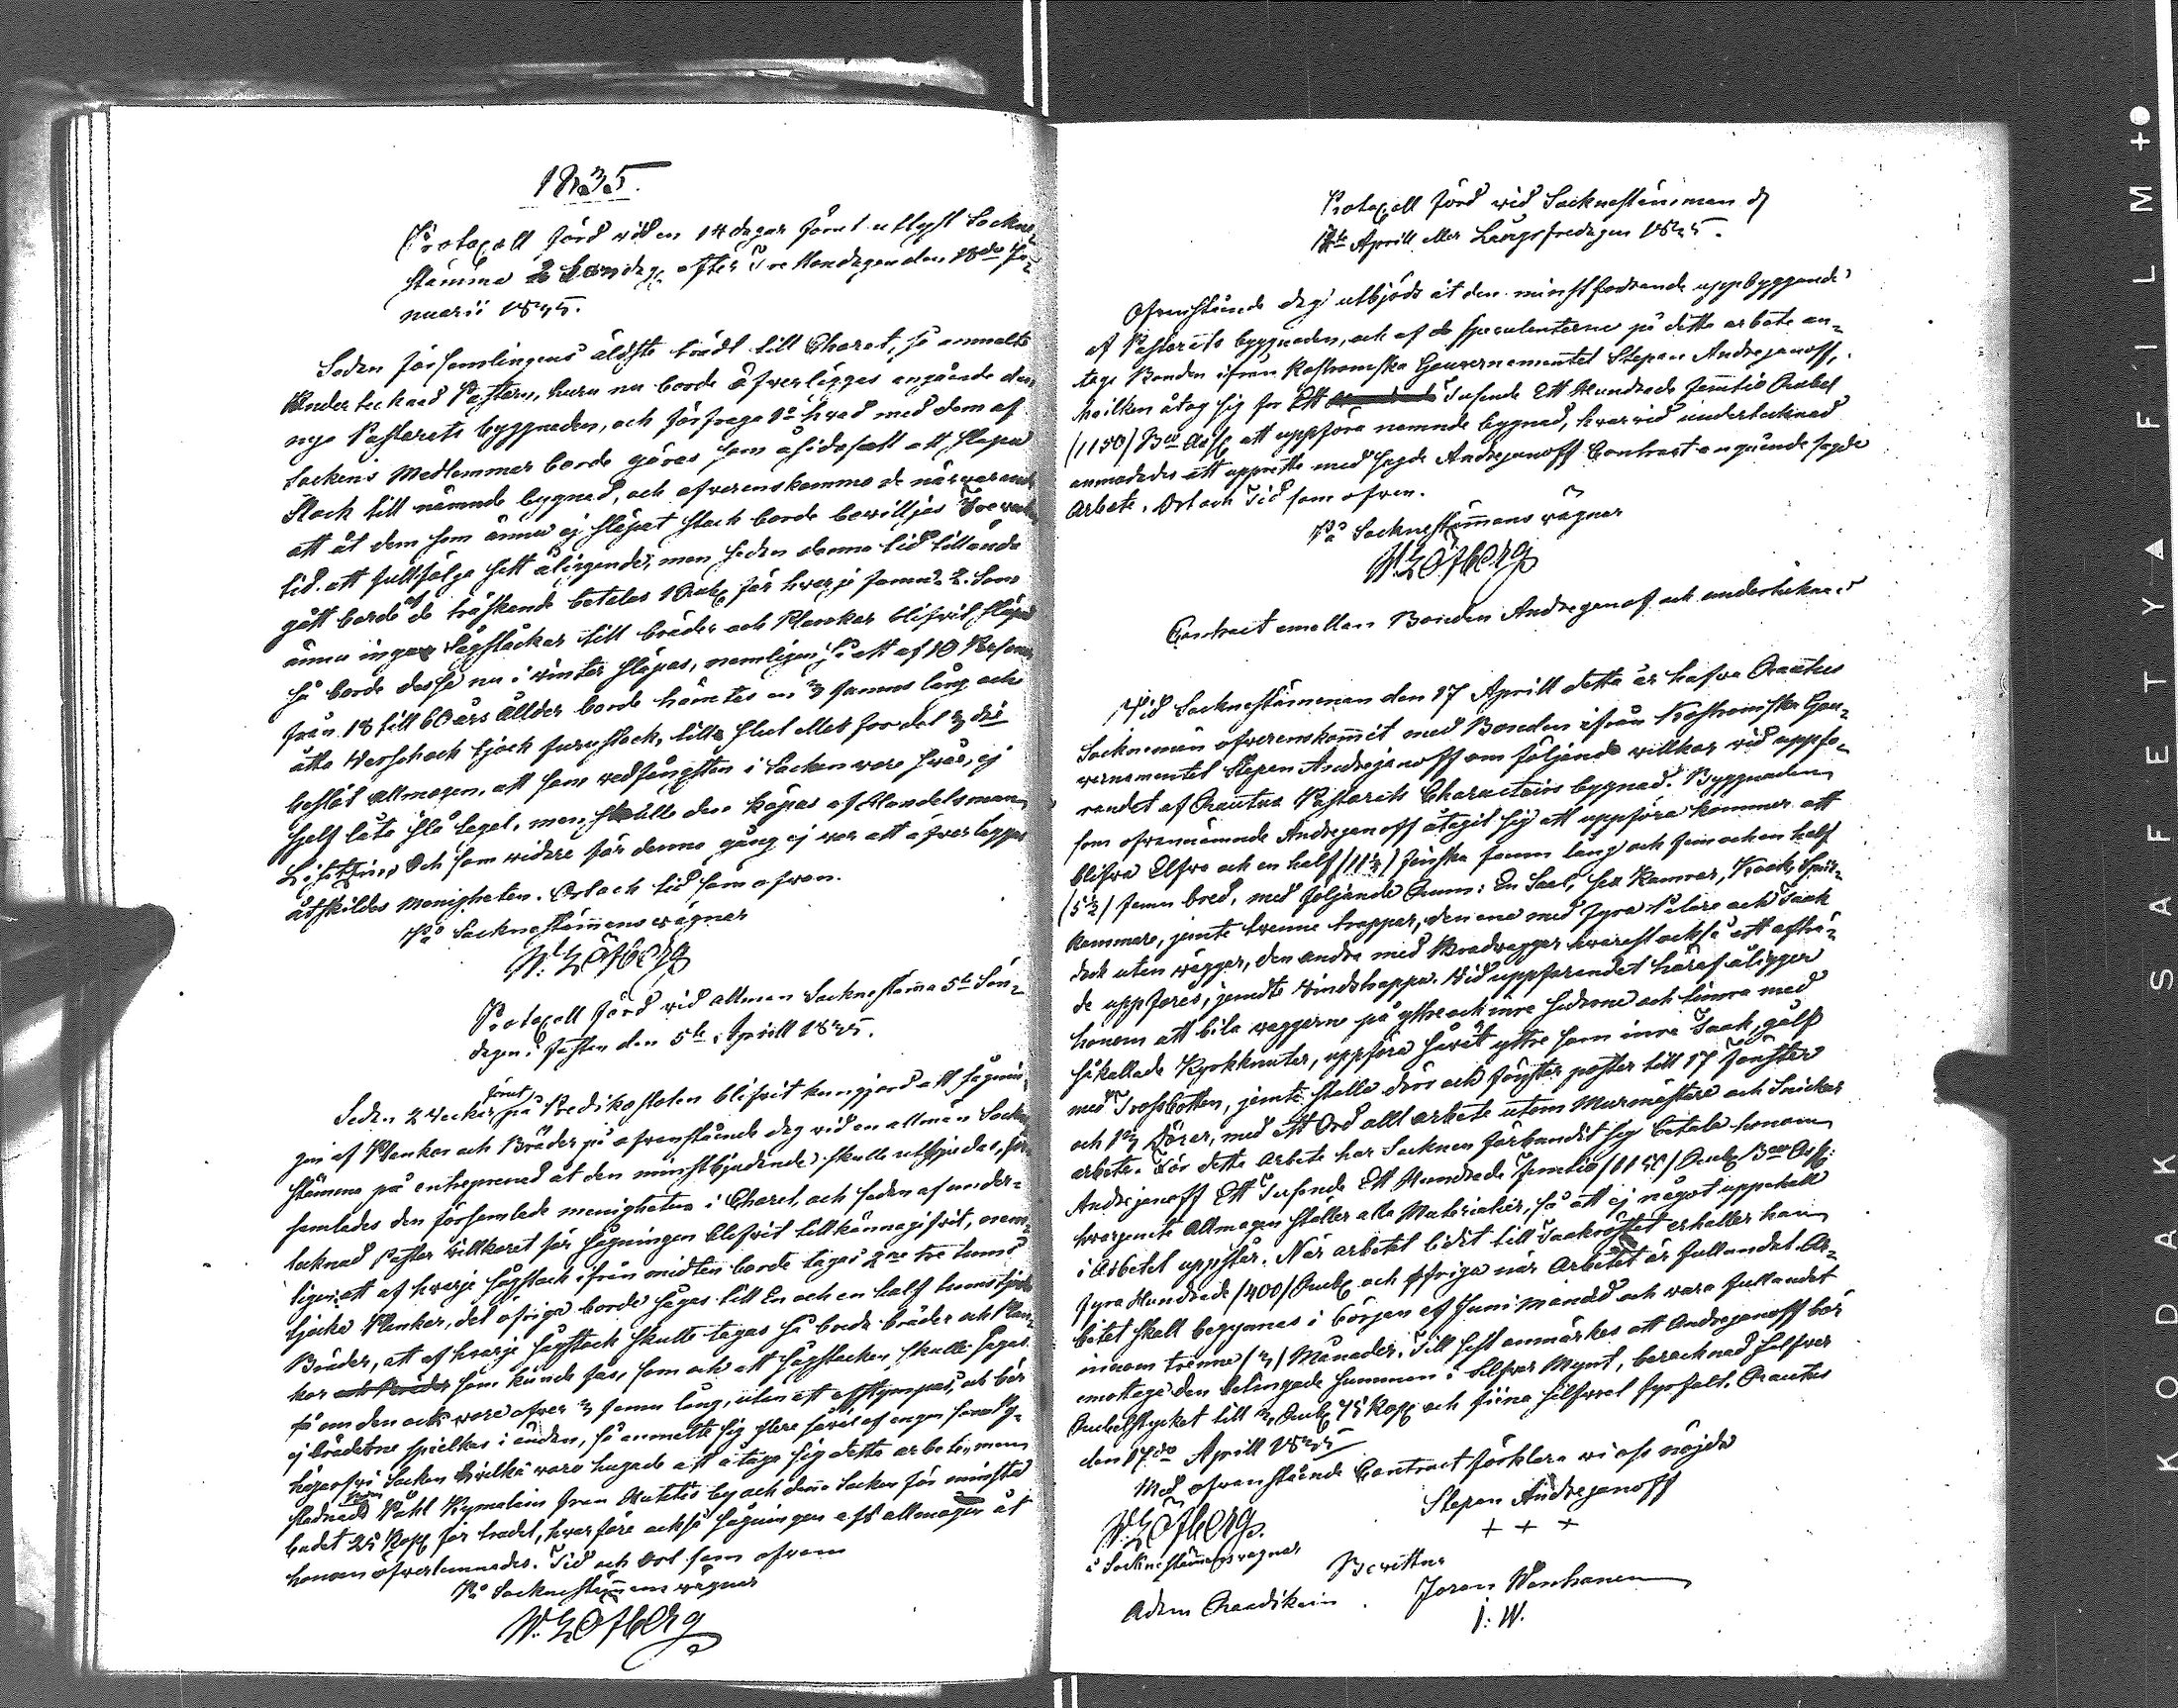 1835.
Protocoll förd vid en 14 dagar förut utlyst Sockne-
stämma 2 Söndag. efter Trettondagen den 18de Ja-
nuarii 1835.
Sedan församlingens äldste trädt till Choret, så anmälte
Undertecknad Pastorn, huru nu borde öfverlägges angående den
nya Pastorats byggnaden, och förfrågo 1o hvad med dem af
Sockens Medlemmar borde göras som åsidosatt att släpa
Stock till nämnde bygnad, och öfverenskommo de närvarande
att åt dem som ännu ej släpat stock borde beviljas Tre veckors
tid att fullfölja sitt åliggende, men sedan denna tid tilländа
gått borde af de tröskande betalas 1 Rub. för hvarje famn. 2. Som
ännu inga Sågstockar till bräder och Plankor blifvit släpad
så borde desse nu i vinter släpas, nemligen så att af 10 Personer
från 18 till 60 års Ållder borde hämtas en 3 famnar lång och
åtta Werschock tjock furustock, till Slut med för det 3dje
beslöt Allmogen, att som vedfångsten i Socken vore svår, ej
sjelf låta slå tegel, men skulle den köpas af Handelsman
och som vidare för denna gång ej var att öfverlägges
åtskildes menigheten. Ort och tid som ofvan.
På Socknestämmans vägnar
W. Löfberg
Protocoll förd vid allmän Socknestämma 5te Sön-
dagen i fastan den 5te Aprill 1835.
Sedan 2 Veckor förut på Predikostolen blifvit kungjord att sågnin-
gen af Plankor och Bräder på ofvanstående dag vid en allmän Sockne
stämma på entreprenad åt den minstbjudande skulle utbjudas, för
samlades den församlade menigheten i Choret, och sedan af under-
tecknad Pastor villkoret för sågningen blifvit tillkännagifvit, nem-
ligen: att af hvarje sågstock ifrån midten borde tagas 2ne tre tums
tjocka Plankor, det öfriga borde sågas till En och en half tums tjocka
Bräder, att af hvarje sågstock skulle tagas så breda bräder och Plan-
kor som kunde fås, som ock att sågstocken skulle sågas
så om den ock vore öfver 3 famn lång, utan att afstympas, ock bör
ej bräderne spielkas i änden, så anmälte sig flere såväl af egen som Py-
häjerfvi Socken hvilka voro hugade att åtaga sig detta arbete, men
stadnade Påhl Kymalain från by och denna Socken för minsta
budet 25 Kop. för bradet, hvarföre också sågningen af allmogen åt
honom öfverlemnades. Tid och Ort som ofvan
På Socknestämmans vägnar
W. Löfberg
Protocoll förd vid Socknestämman d
Aprill eller Långfredagen 1835.
Ofvanstående dag utbjöds åt den minstfordrande uppbyggande
af Pastorats byggnaden, och af de speculenterne på detta arbete an-
togs Bonden ifrån Kostromska Gouvernementet Stepan Andrejanoff,
hvilken åtog sig för Ett Tusende Ett Hundrade femtio Rubel
(1150) Bco Ass. att uppföra nämnde bygnad, hvarvid undertecknad
anmodades att upprätta med sagde Andrejanoff Contract angående sagde
Arbete. Ort och Tid som ofvan.
På Socknestämmans vägnar
W. Löfberg
Contract emellan Bonden Andrejanof och undertecknad
Vid Socknestämman den 17 Aprill detta år hafva Rautus
Sockneman öfverenskommit med Bonden ifrån Kostromska Gou-
vernementet Stepan Andrejanoff om följande villkor vid uppfö-
randet af Rautus Pastorats Characteurs bygnad. Byggnaden
som ofvannämnde Andrejanoff åtagit sig att uppföra kommer att
blifva Elfva och en half (11½) finska famn lång och fem och en half
(5½) famn bred, med följande Rum: En Saal, sex Kamrar, Kook, Spis-
kammare, jemte tvenne trappor, den ena med fyra Pelare och Taak
dock utan väggar, den andra med Bradvaggar hvarest också ett afträ-
de uppföres, jemte Vindstrappa. Vid uppförandet häraf åligger
honom att bila väggarne på yttre och inre sidorne och timra med
såkallade Kyrkknutar, uppföra såväl yttre som inre Taak, golf
med Trossbotten, jemte ställa dörr och fönster poster till 17 Fönster
och 13 Dörrar, med ett Ord allt arbete utom Murmästare och Snickar
arbete. För detta Arbete har Socknen förbundit sig betala honom
Andrejanoff Ett Tusende Ett Hundrade femtio (1150) Rub. Bco Ass.
hvarjemte Allmogen ställer alla Materialier, så att ej något uppehåll
i Arbetet uppstår. När arbetet lidit till Taakröstet erhåller han
fyra Hundrade (400) Rub. och öfriga när Arbetet är fullandat. Ar-
betet skall begynnas i början af Juni månad och vara fullandet
innom trenne (3) Månader. Till sist anmärkes att Andrejanoff bör
emottaga den betingade summan i Silfver Mynt, beräcknad Silfver
Rubelstycket till 3 Rub. 75 Kop. och Rautus
den 17de Aprill 1835
Med ofvanstående Contract förklara vi oss nöjda
W. Löfberg.
å Socknestämmans vägnar
Stepan Andrejanoff
+ + +
Bevittna
Adam Raadikain. Jöran Wanhanen
I: W.
KODAK SAFETY ▲ FILM +●